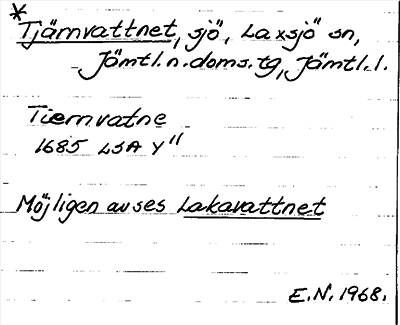 *Tjärnvattnet, sjö, Laxsjö sn,
Jämtl.n.doms.tg, Jämtl.l.
Tiernvatne
1685 LSA Y"
Möjligen avses Lakavattnet
E.N. 1968.